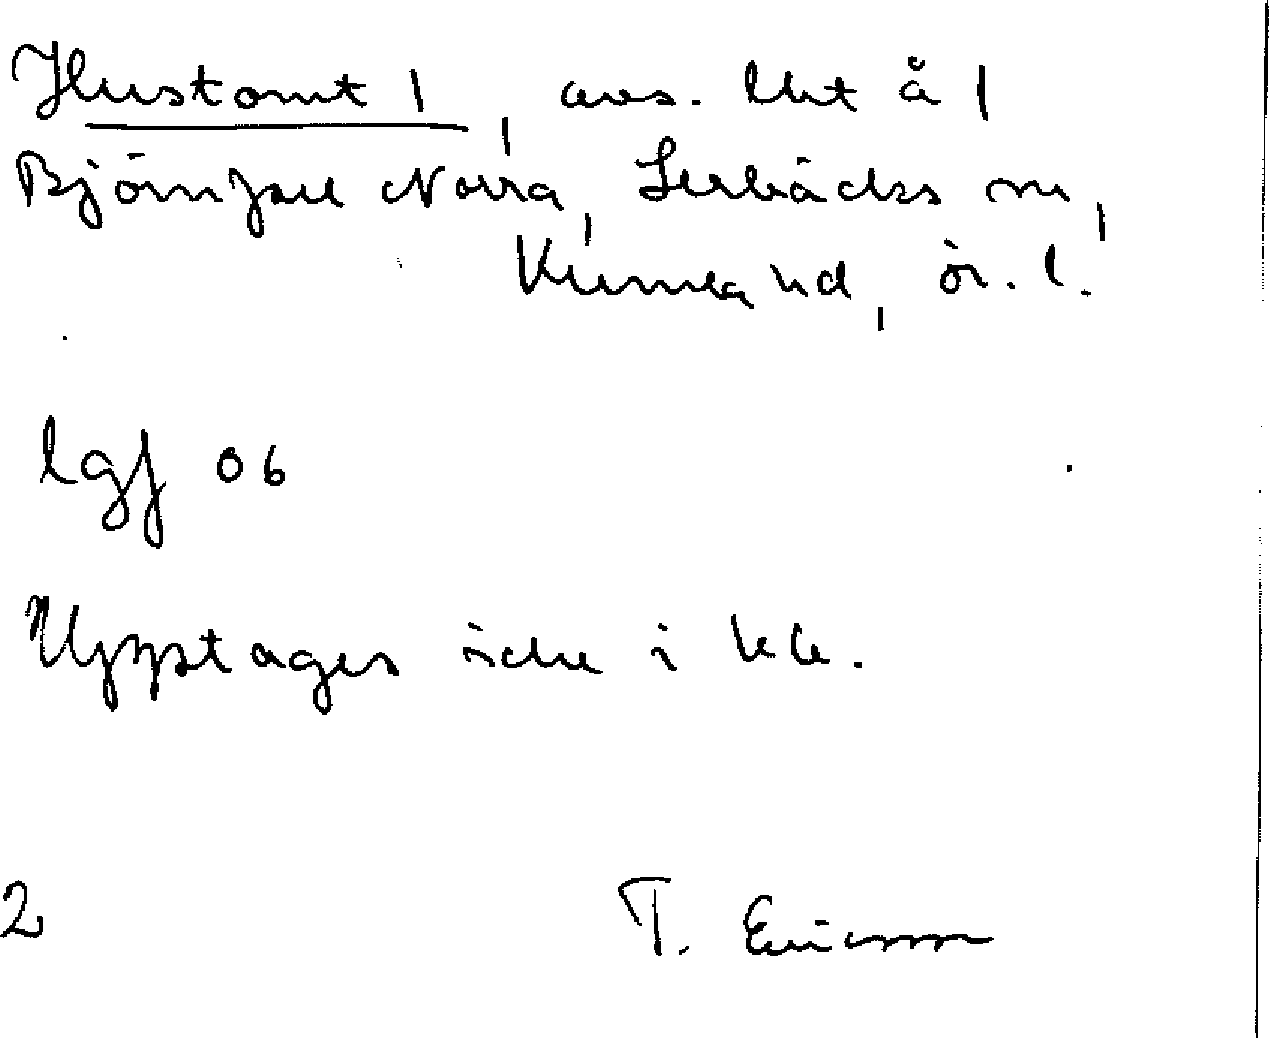 Hustomt 1, avs. lht å 1
Björnfall Norra, Lerbäcks sn,
Kumla hd, ör. l.
lgf 06
Upptages icke i kk.
2 T. Ericsson